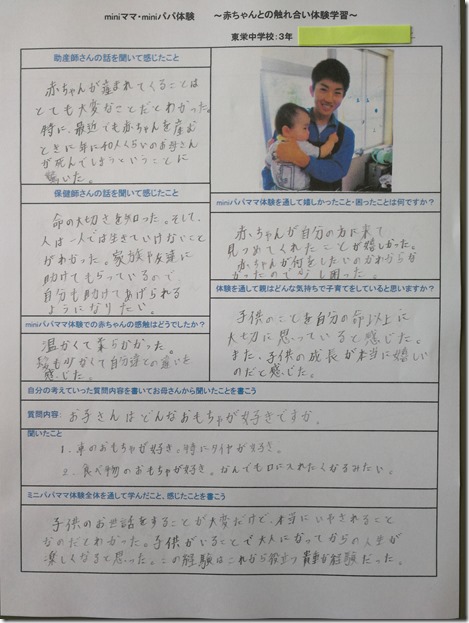 miniママ・miniパパ体験　～赤ちゃんとの触れ合い体験学習～
東栄中学校：3年
助産師さんの話を聞いて感じたこと
赤ちゃんが産まれてくることは
とても大変なことだとわかった。
特に、最近でも赤ちゃんを産む
ときに年に40人くらいのお母さん
が死んでしまうということに
驚いた。
保健師さんの話を聞いて感じたこと
命の大切さを知った。そして、
人は一人では生きていけないこと
がわかった。家族や友達に
助けてもらっているので、
自分も助けてあげられる
ようになりたい。
miniパパママ体験での赤ちんの感触はどうでしたか？
温かくて柔らかかった。
も小さくて自分達との違いを
感じた。
miniパパママ体験を通して嬉しかったこと・困ったことは何ですか？
赤ちゃんが自分の方に来て
見つめてくれたことが嬉しかった。
赤ちゃんが何をしたいのかわからな
かったので少し困った。
体験を通して親はどんな気持ちで子育てをしていると思いますか？
子供のことを自分の命以上に
大切に思っていると感じた。
また、子供の成長が本当に嬉しい
のだと感じた。
自分の考えていった質問内容を書いてお母さんから聞いたことを書こう
質問内容：お子さんはどんなおもちゃが好きですか。
聞いたこと
1. 車のおもちゃが好き。特にタイヤが好き。
2. 食べ物のおもちゃが好き。なんでも口に入れたくなるみたい。
ミニパパママ体験全体を通して学んだこと、感じたことを書こう
子供のお世話をすることが大変だけど、本当にいやされること
なのだとわかった。子供がいることで大人になってからの人生が
楽しくなると思った。この経験はこれから役立つ貴重な経験だった。